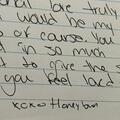 are truly
would be my
of course. You
in so much
to give the
you feel loved
xoxo Honeybun